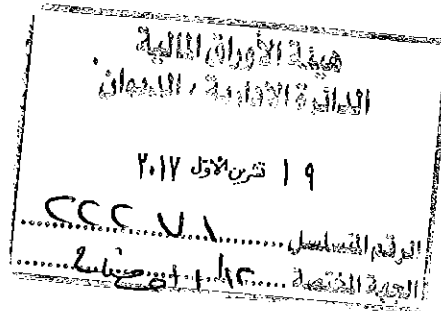 هيئة الأوراق المالية
الدائرة الإدارية / الديوان
١٩ تشرين الأول ٢٠١٧
الرقم المتسلسل
الجهة المختصة